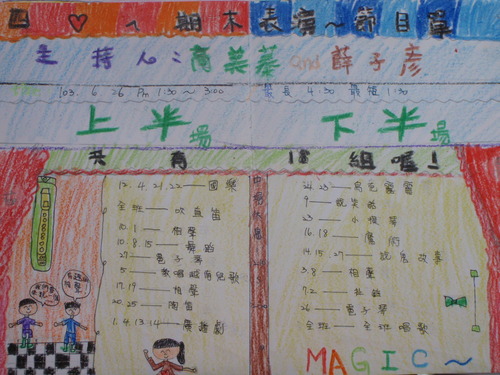 四♡ 期末表演~節目單
主持人:高美蓁 and 薛子彥
103. 6. 26 Pm 1:30~3:00 最長4:30 最短1:30
上半場 下半場
共有18組喔!
12. 4. 21. 22——國樂
全班——吹直笛
10. 1——相聲
10. 8. 15——舞蹈
27——電子琴
5——歌唱
17. 19——相聲
20. 25——陶笛
1. 4. 13. 14——廣播劇
中場休息
9——說笑話
23——小提琴
16. 18——魔術
14. 15. 27——說鬼故事
3. 8——相聲
26——電子琴
全班——全班唱歌
MAGIC~